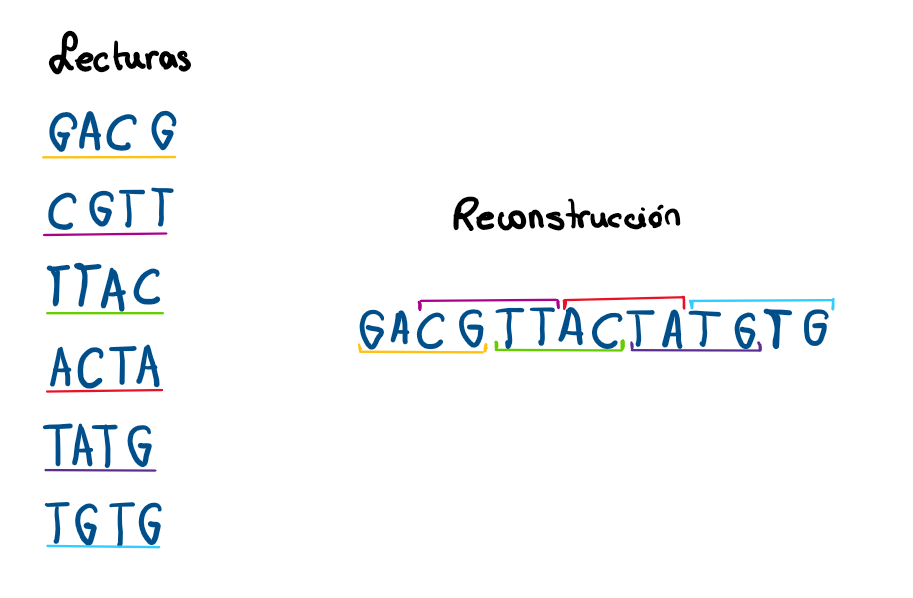 Lecturas
GACG
CGTT
TTAC
ACTA
TATG
TGTG
Reconstrucción
GACGTTACTATGTG